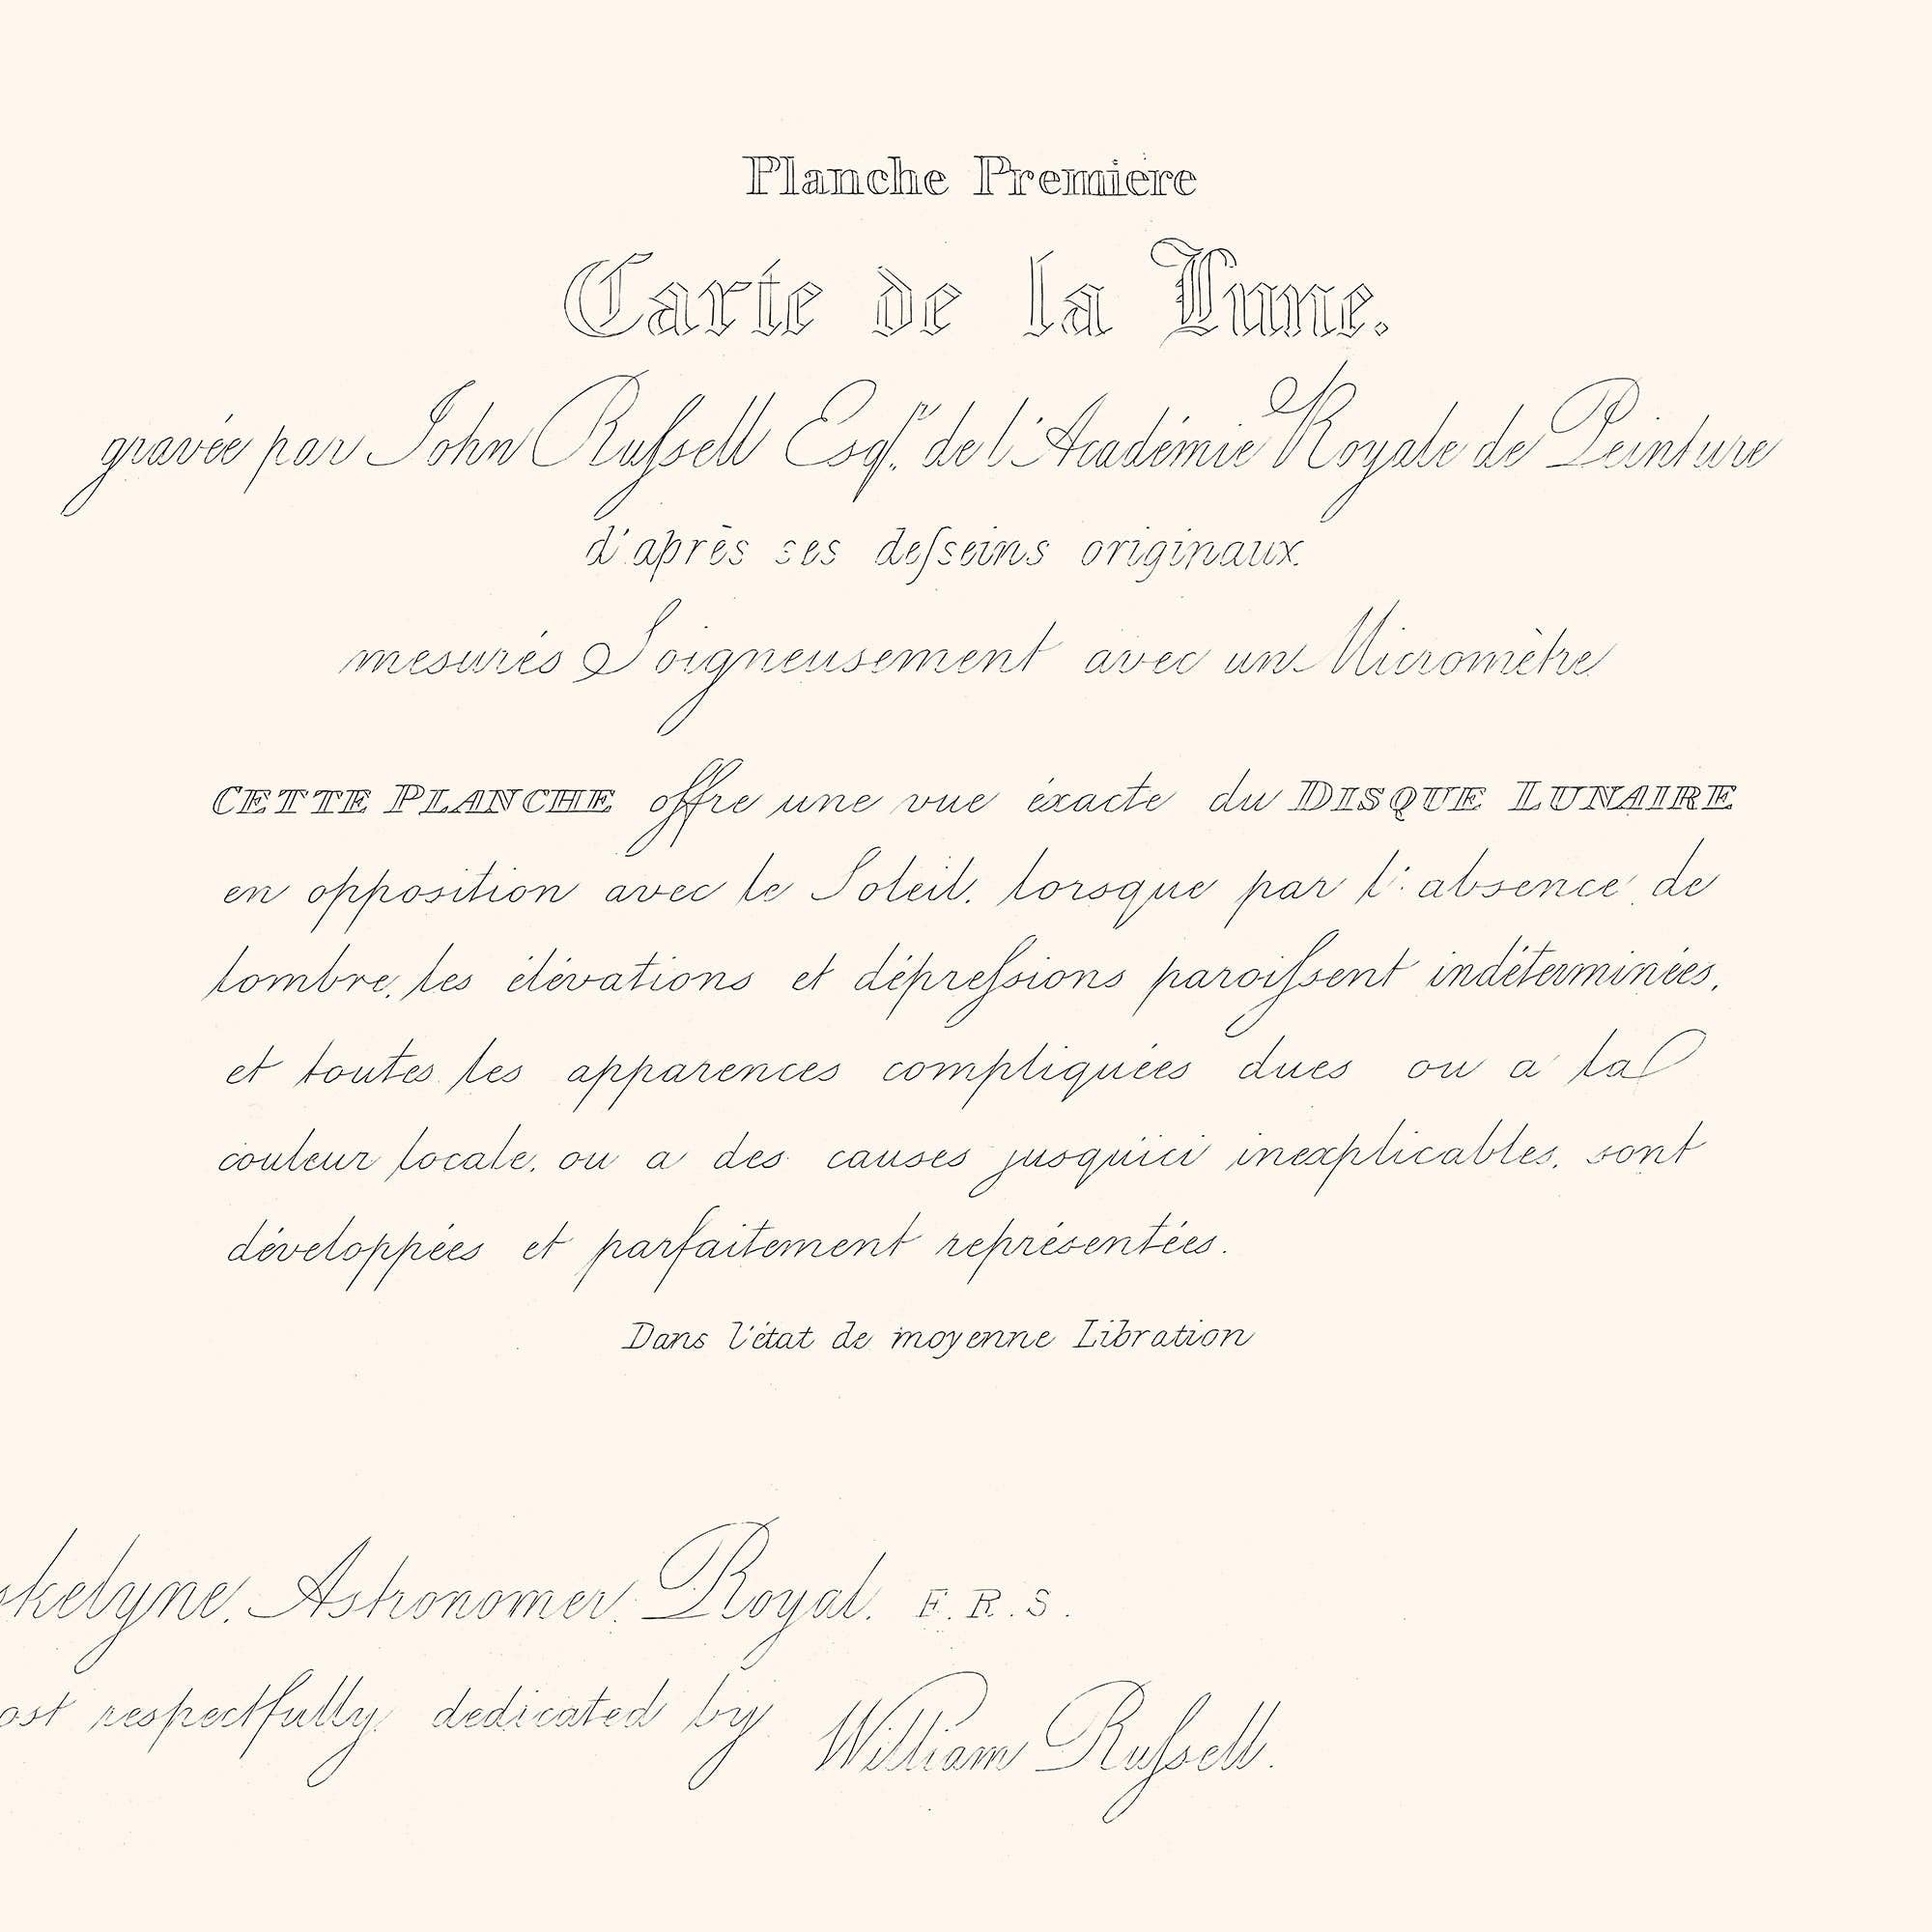 Planche Premiere
Carte de la Lune.
gravée par John Ruſsell Esqr. de l'Académie Royale de Peinture
d'après ses deſseins originaux.
mesurés Soigneusement avec un Micromètre
CETTE PLANCHE offre une vue éxacte du DISQUE LUNAIRE
en opposition avec le Soleil, lorsque par l'absence de
lombre, les élévations et dépreſsions paroiſsent indéterminées,
et toutes les apparences compliquées dues ou a la
couleur locale, ou a des causes jusqu'ici inexplicables, sont
développées et parfaitement représentées.
Dans l'état de moyenne Libration
skelyne, Astronomer Royal, F.R.S.
ost respectfully dedicated by William Ruſsell.